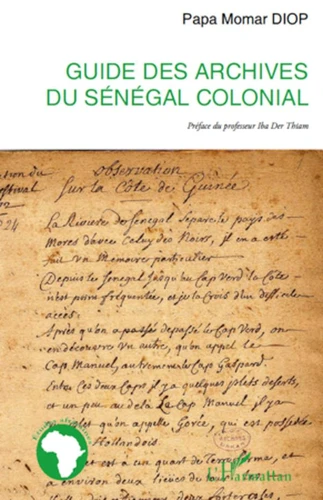 Papa Momar DIOP
GUIDE DES ARCHIVES
DU SÉNÉGAL COLONIAL
Préface du professeur Iba Der Thiam
observation
Sur la Côte de Guinée
24
La Riviere de Senegal Separe le pays des
Mores d'avec Celuy des Noirs, il m'en a esté
fait un Memoire particulier
Depuis le Senegal Jusqu'au Cap Verd la Côte
n'est point frequentée, et je la Crois d'un difficile
accès.
Après qu'on a passé depassé le Cap Verd, on
en découvre un autre, qu'on appel le
Cap Manuel, autrement le Cap Gaspard.
Entre Ces deux Caps il y a quelques Islets deserts,
et un peu au delà Le Cap Manuel il y a
qu'on appelle Gorée, qui est possedée
Hollandois
est a un quart de
a environ deux
L'Harmattan